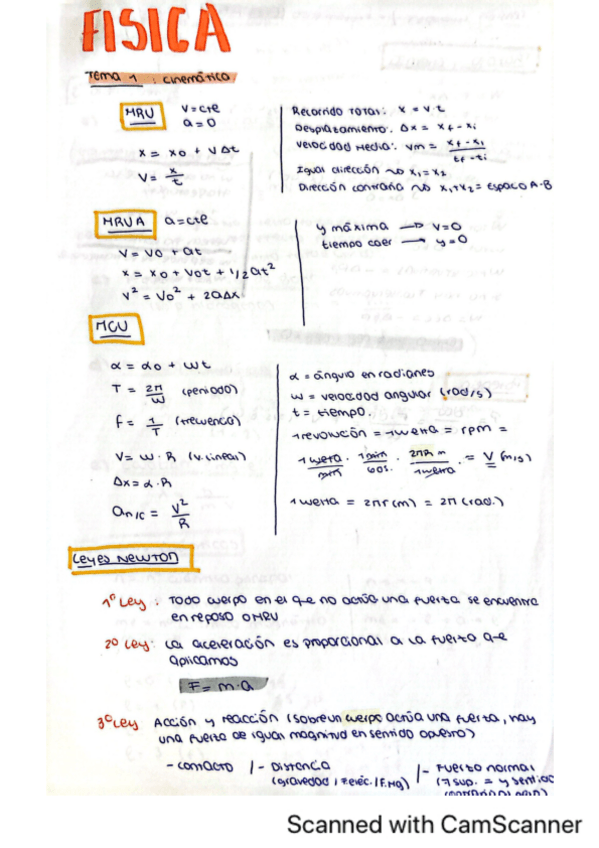 FISICA
Tema 1 : cinemática
MRU v=cte
a=0
x = x0 + v∆t
v= x/t
Recorrido total: x = v·t
Desplazamiento: ∆x = xf - xi
velocidad Media: vm = xf-xi/tf-ti
Igual dirección ~> x1=x2
Dirección contraria ~> x1+x2 = Espacio A-B
MRUA a=cte
v= v0 + at
x = x0 + v0t + 1/2 at²
v² = v0² + 2a∆x
y máxima → v=0
tiempo caer → y=0
MCU
α = α0 + wt
T = 2π/w (periodo)
f = 1/T (frecuencia)
v= w·R (v.lineal)
∆x= α·R
an/c = v²/R
α = ángulo en radianes
w = velocidad angular (rad/s)
t = tiempo.
1 revolución = 1 vuelta = rpm =
1 vuelta/min · 1min/60s. · 2πR m/1 vuelta = v (m/s)
1 vuelta = 2πr (m) = 2π (rad.)
Leyes Newton
1º Ley : Todo cuerpo en el que no actúa una fuerza se encuentra
en reposo o MRU
2º Ley: La aceleración es proporcional a la fuerza que
aplicamos
F= m·a
3º Ley Acción y reacción (sobre un cuerpo actúa una fuerza, hay
una fuerza de igual magnitud en sentido opuesto)
- contacto / - Distancia
(gravedad /
/- Fuerza normal
Scanned with CamScanner